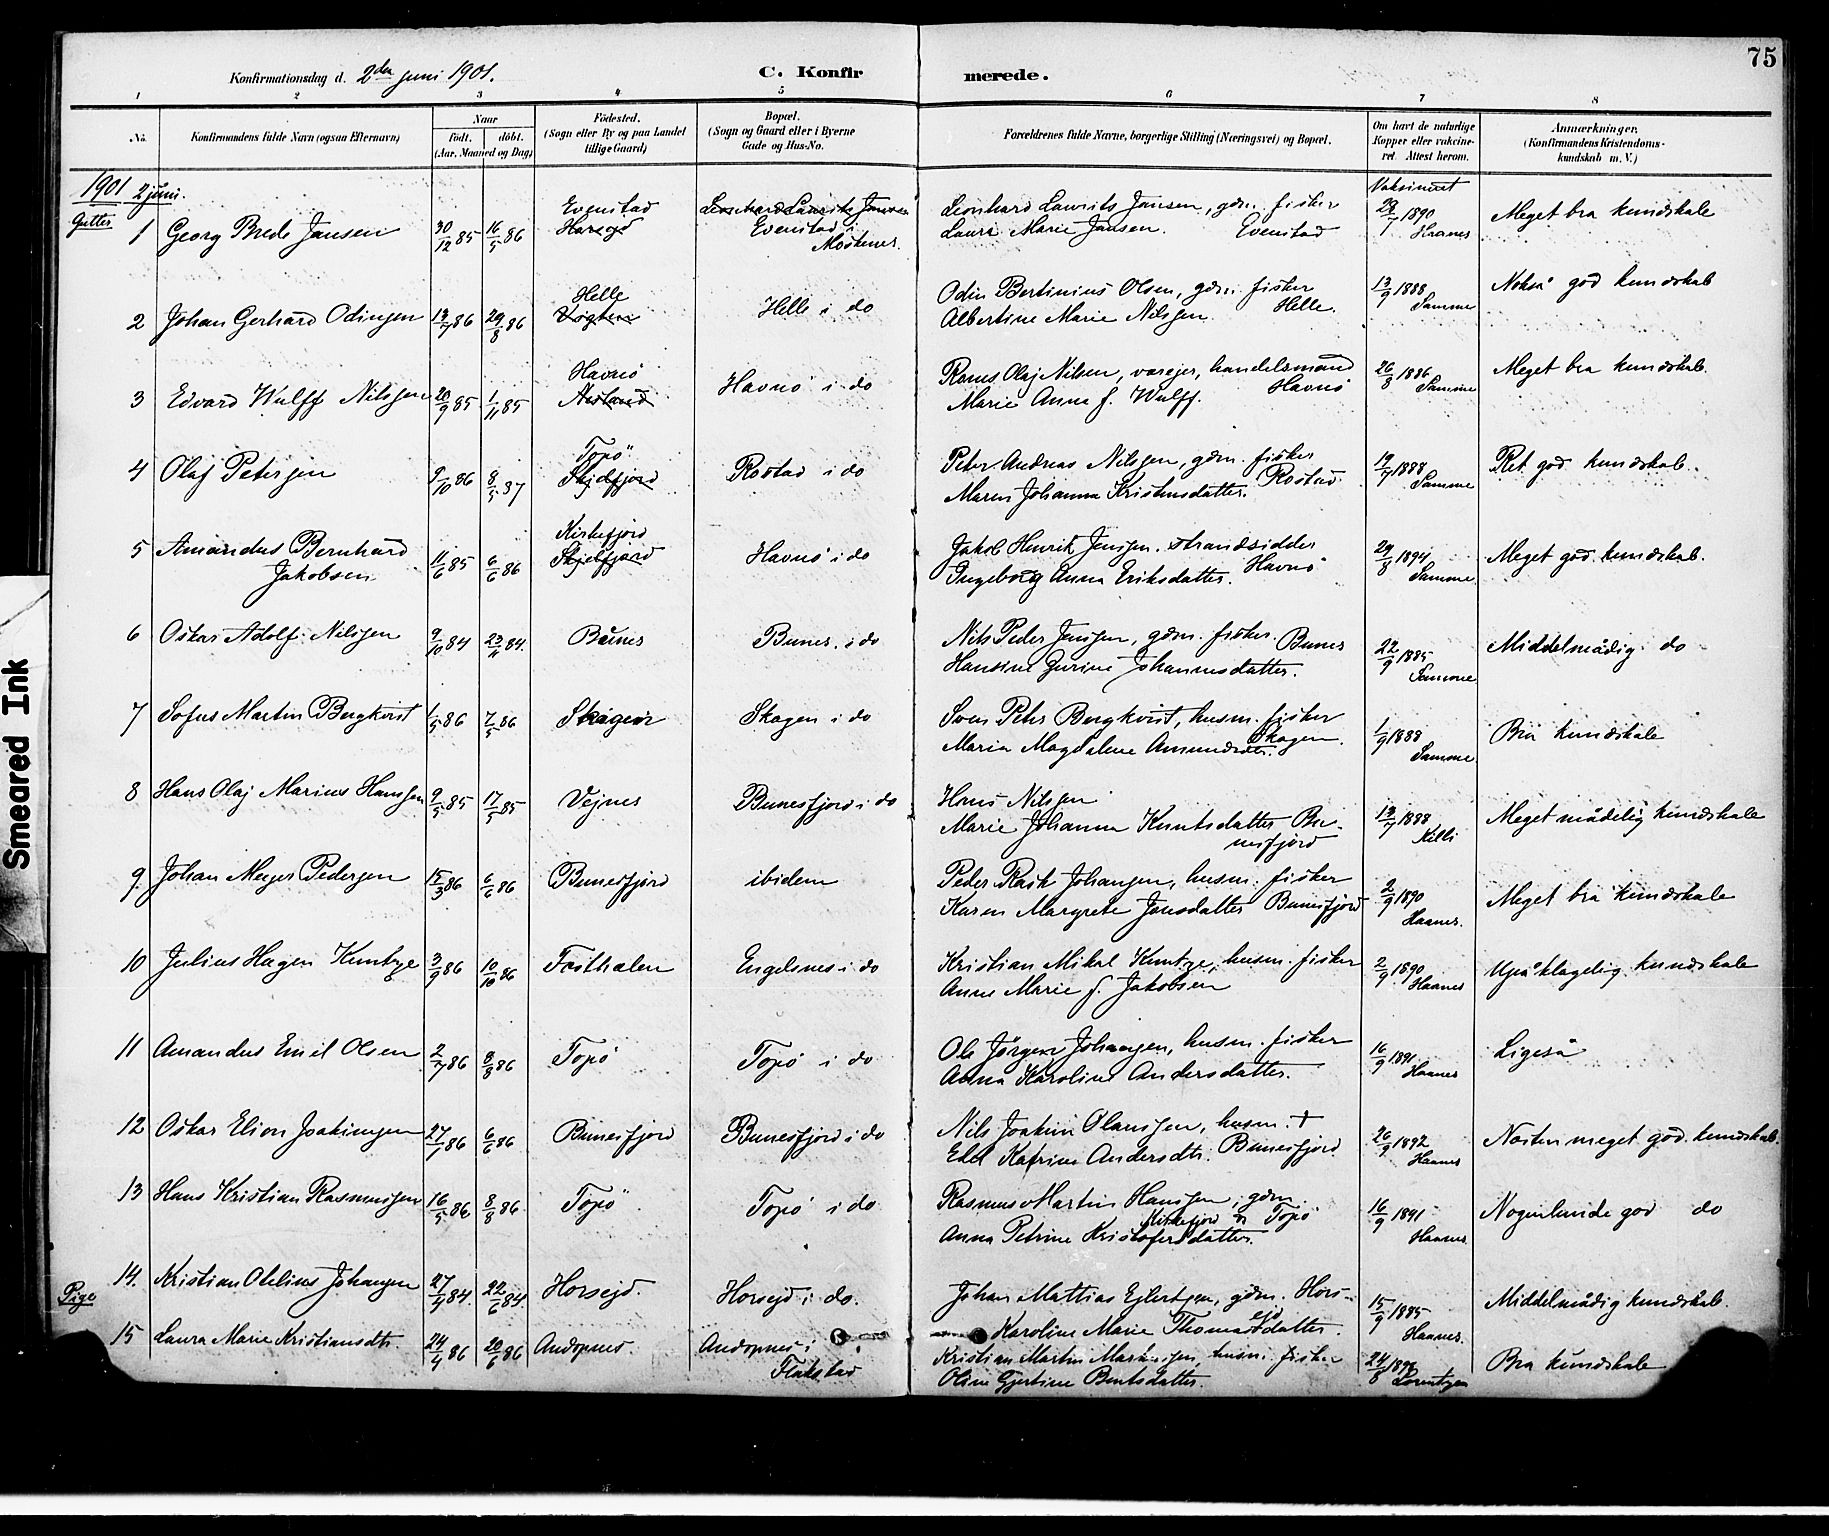 75
Konfirmationsdag d. 2den juni 1901.
C. Konfirmerede.
1 2 3 4 5 6 7 8
No.
Konfirmandens fulde Navn (ogsaa Efternavn)
Naar
födt. döbt.
(Aar, Maaned og Dag)
Födested.
(Sogn eller By og paa Landet
tillige Gaard)
Bopæl.
(Sogn og Gaard eller i Byerne
Gade og Hus-No.
Forældrenes fulde Navne, borgerlige Stilling (Næringsvei) og Bopæl.
Om havt de naturlige
Kopper eller vakcine-
ret. Attest herom.
Anmærkninger.
(Konfirmandens Kristendoms-
kundskab m. V.)
1901 2 juni.
Gutter
1 Georg Brede Jansen 30/12 85 16/5 86 Evenstad
Evenstad i Moskenes.
Leonhard Laurits Jansen, gdm. fisker
Laura Marie Jansen. Evenstad
Vaksineret 28/7 1890 Haanes
Meget bra kundskab
2 Johan Gerhard Odinsen 13/7 86 29/8 86 Helle
Helle i do
Odin Bertinius Olsen, gdm. fisker
Albertine Marie Nilsen. Helle.
13/9 1888 Samme
Nokså god kundskab
3 Edvard Wulff Nilssen 20/9 85 1/11 85 Havnö
Havnö i do
Rasmus Olaj Nilsen, væreier, handelsmand
Marie Anna f. Wulff. Havnö
26/8 1886 Samme
Meget bra kundskab.
4 Olaf Petersen 9/10 86 8/5 87 Topö
Rostad i do
Peter Andreas Nilssen, gdm. fisker
Maren Johanna Kristensdatter. Rostad.
19/7 1888 Samme
Ret god kundskab.
5 Amandus Bernhard
Jakobsen 11/6 85 6/6 86 Kirkefjord
Skjelfjord
Havnö i do
Jakob Henrik Jensen. strandsidder
Ingeborg Anna Eriksdatter. Havnö
29/8 1894 Samme
Meget god kundskab.
6 Oskar Adolf Nilssen 9/10 84 23/11 84. Bunes
Bunes. i do
Nils Peder Jensen, gdm. fisker. Bunes
Hansine Gurine Johannesdatter.
22/9 1885 Samme
Middelmådig do
7 Sofus Martin Bergkvist 1/5 86 7/5 86 Skagen
Skagen i do
Sven Peter Bergkvist, husm. fisker
Maria Magdalene Amundsdtr. Skagen.
1/9 1888 Samme
Bra kundskab
8 Hans Olaj Marius Hanssen 9/5 85 17/5 85 Vejnes
Bunesfjord i do
Hans Nilsen
Marie Johanna Knutsdatter Bu-
nesfjord
13/7 1888 Killi
Meget mådelig kundskab
9. Johan Meyer Pedersen 15/3 86 6/6 86 Bunesfjord
ibidem
Peder Rask Johansen, husm. fisker
Karen Margrete Jonsdatter Bunesfjord
2/9 1890 Haanes.
Meget bra kundskab
10 Julius Hagen Kuntze 3/9 86 10/10 86
Engelsnes i do
Kristian Mikal Kuntze, husm. fisker
Anne Marie f. Jakobsen
2/9 1890 Haanes
Upåklagelig kundskab
11 Amandus Emil Olsen 2/7 86 8/8 86 Topö
Topö i do
Ole Jörgen Johansen, husm. fisker
Anna Karoline Andersdatter.
16/9 1891 Haanes
Ligeså
12 Oskar Elion Joakimsen 27/1 86 6/6 86 Bunesfjord
Bunesfjord i do
Nils Joakim Olaussen, husm. †
Edel Katrine Andersdtr. Bunesfjord
26/9 1892 Haanes
Næsten meget god kundskab.
13 Hans Kristian Rasmussen 16/5 86 8/8 86 Topö
Topö i do
Rasmus Martin Hanssen, gdm.
Topö
Anna Petrine Kristofersdatter.
16/9 1891 Haanes.
Nogenlunde god do
14. Kristian Otelius Johansen 27/4 84. 22/6 84. Horseid.
Horseid i do.
Johan Mattias Ejlertsen, gdm. Hors-
eid
Karoline Marie Thomasdatter.
15/9 1885 Haanes.
Middelmådig kundskab.
Pige
15 Laura Marie Kristiansdtr. 24/4 86 20/6 86 Andopnes.
Andopnes i
Flakstad
Kristian Martin Markussen, husm. fisker
Oline Gjertine Bentsdatter.
24/8 Lorentzen
Bra kundskab
Smeared Ink